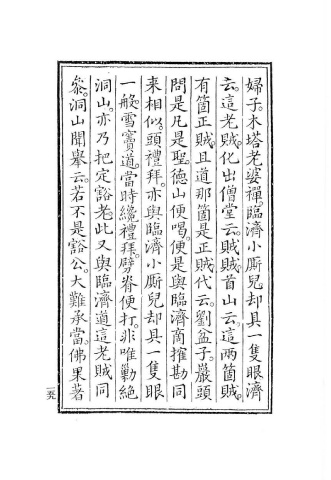 婦子。木塔老婆禪。臨濟小厮兒却具一隻眼。濟
云。這老賊。化出僧堂云。賊賊。首山云。這兩箇賊。
有箇正賊。且道那箇是正賊。代云。劉盆子。巖頭
問。是凡是聖。德山便喝。便是與臨濟商搉勘同
來相似。頭禮拜。亦與臨濟小厮兒却具一隻眼
一般。雪竇道。當時纔禮拜。劈脊便打。非唯勦絕
洞山。亦乃把定豁老。此又與臨濟道這老賊同
叅。洞山聞舉云。若不是豁公。大難承當。佛果著